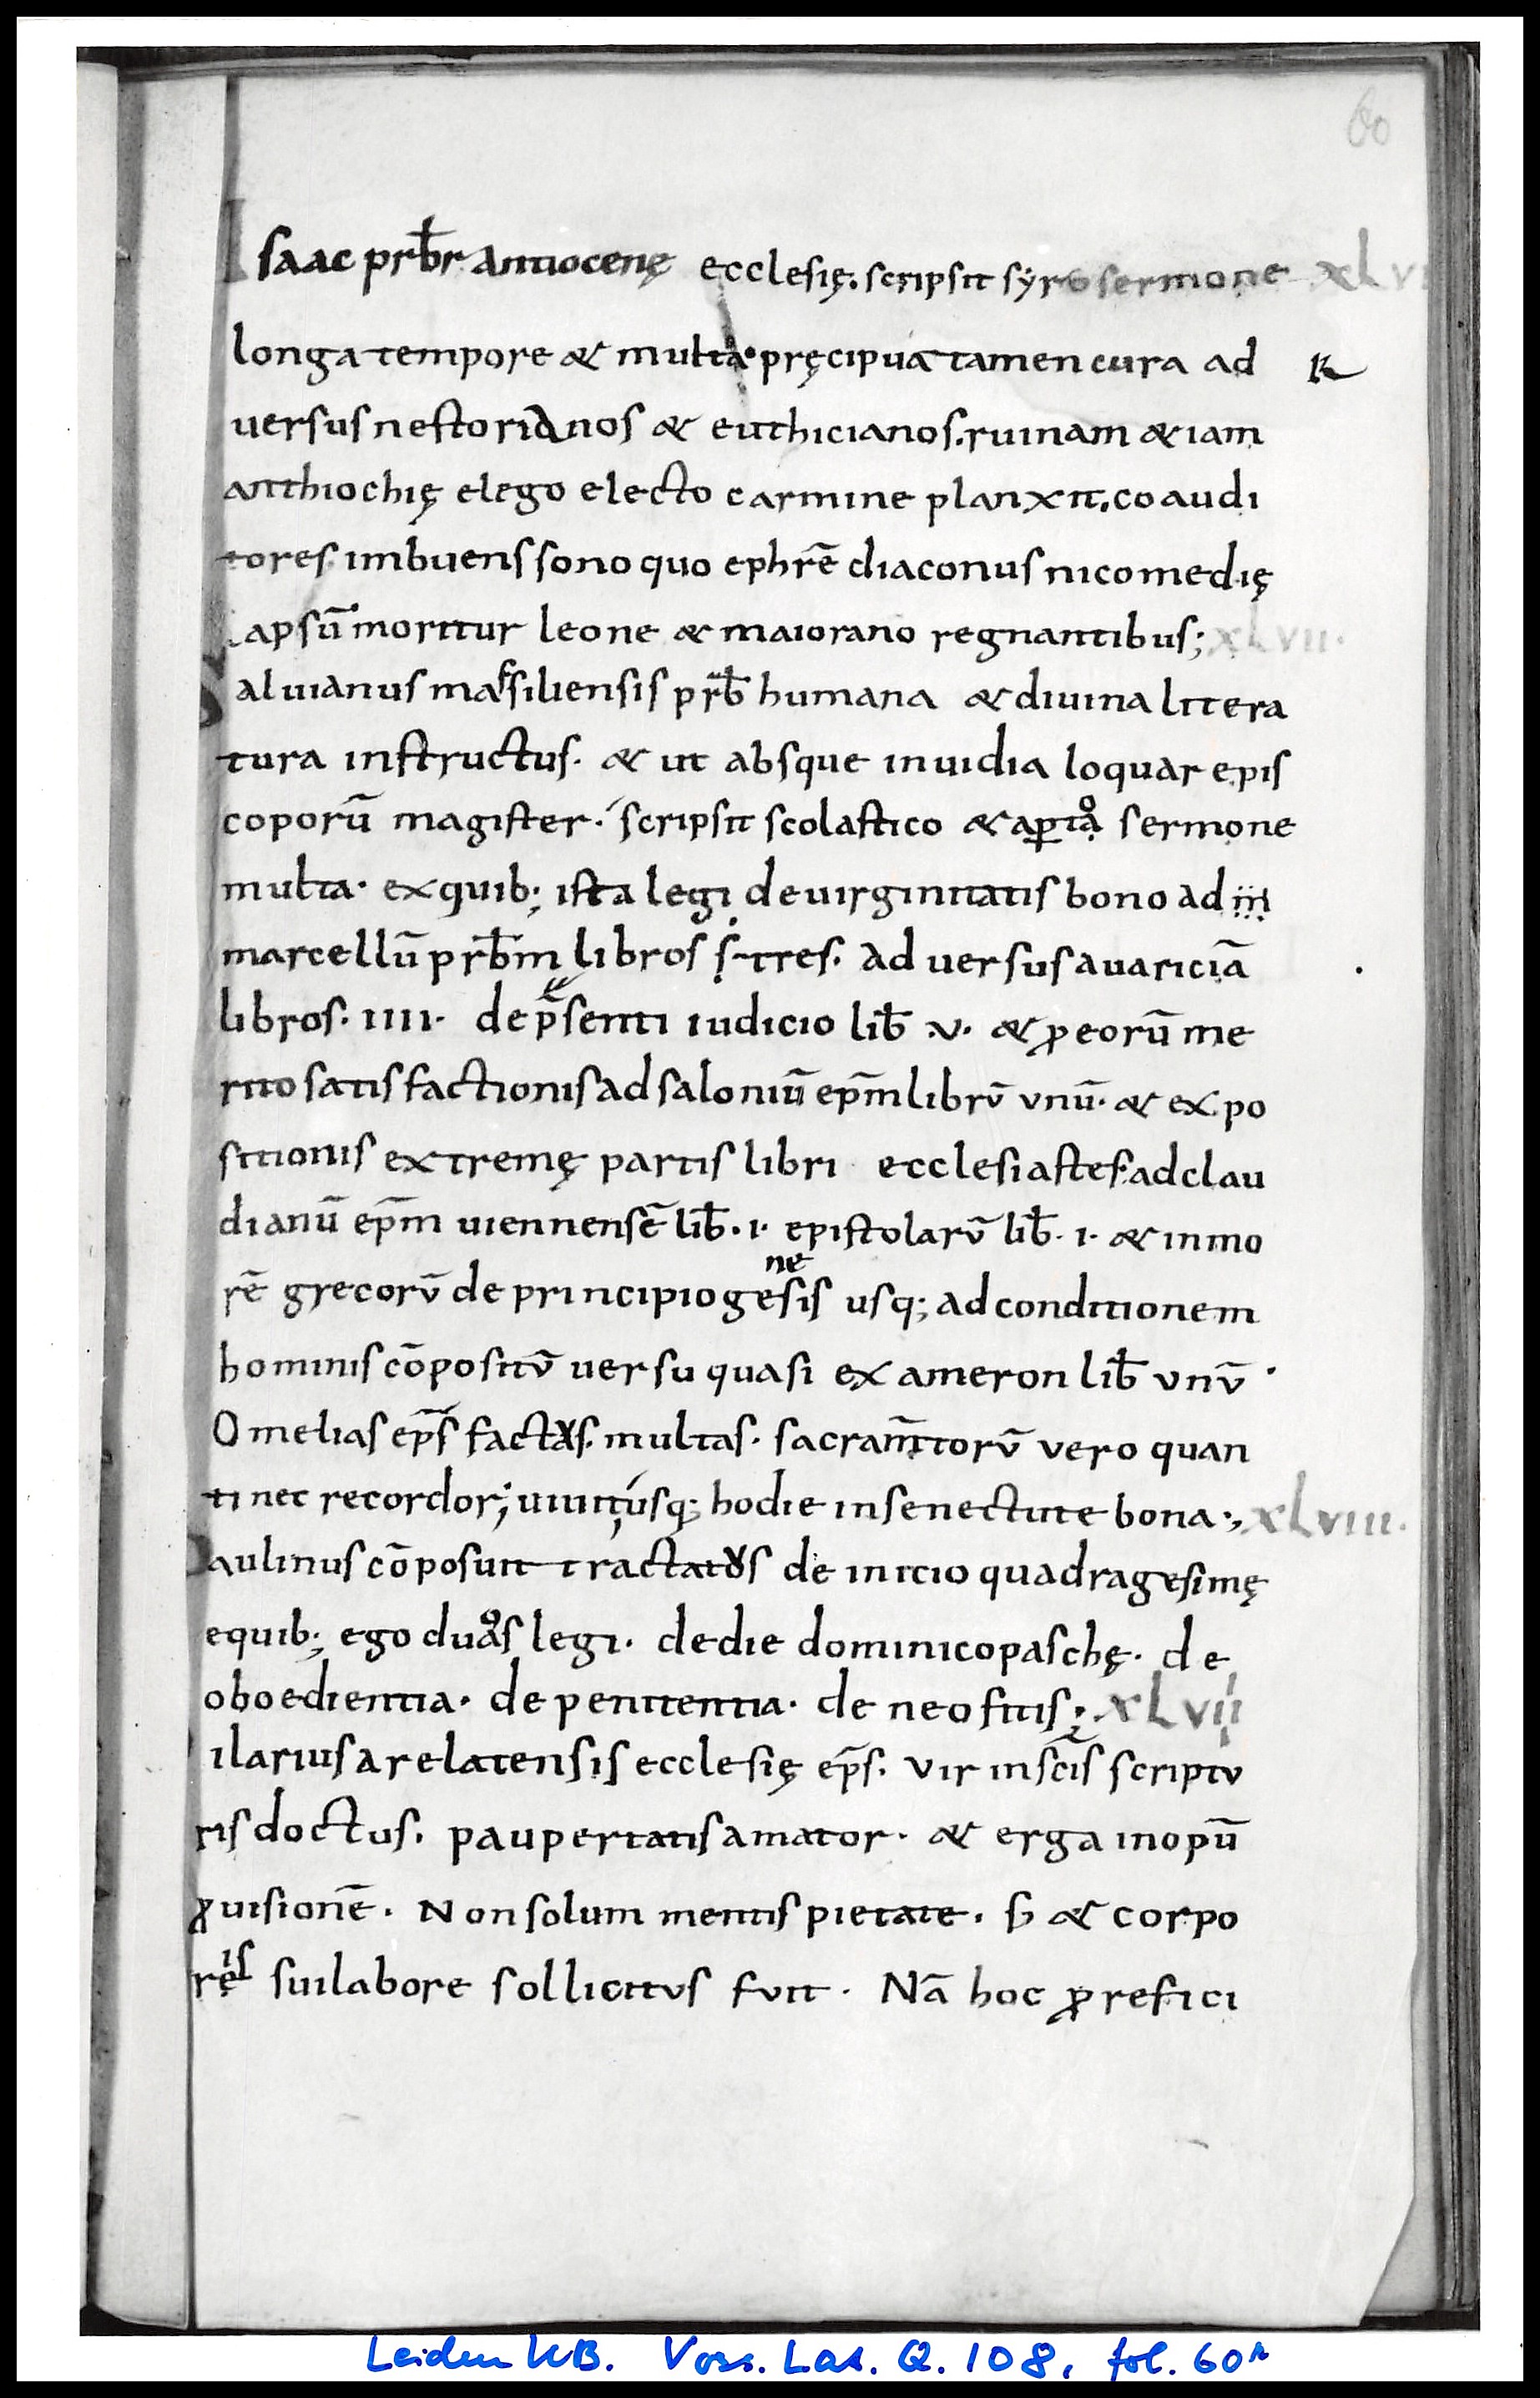 60
Isaac prƀr antiocenę ecclesię. scripsit syro sermone xlvi
longa tempore & multa· pręcipua tamen cura ad
uersus nestorianos & euthicianos. ruinam &iam
anthiochię elego electo carmine planxit. eo audi
tores imbuens sono quo ephrē diaconus nicomedię
lapsū· moritur leone & maiorano regnantibus; xlvii·
Saluianus marsiliensis prƀ humana & diuina littera
tura instructus· & ut absque inuidia loquar epis
coporū magister· scripsit scolastico & aꝑtoͣ sermone
multa· ex quib; ista legi de uirginitatis bono ad iii
marcellū prƀm libros s· tres· aduersus auariciā
libros· iiii· de p̄senti iudicio liƀ v· & ꝓ eorū me
rito satisfactionis ad saloniū ep̄m librū unū· & expo
sitionis extremę partis libri ecclesiastes· ad clau
dianū ep̄m uiennensē liƀ· i· epistolarū liƀ· i· & in mo
rē grecorū de principio ge
ne
sis usq; ad conditionem
hominis cōpositū uersu quasi exameron liƀ unū·
Omelias ep̄s factas· multas· sacram̄torū vero quan
ti nec recordor; uiuit usq; hodie in senectute bona·, xlviii·
Paulinus cōposuit tractatus de inicio quadragesimę
e quib; ego duos legi· de die dominico paschę· de
oboedientia· de penitentia· de neofitis; xlvii
ilarius arelatensis ecclesię ep̄s· vir in sc̄is scriptu
ris doctus· paupertatis amator· & erga inopū
ꝓuisionē· Non solum mentis pietate· s; & corpo
reis sui labore sollicitus fuit· Nā hoc ꝓ refici
Leiden UB. Voss. Lat. Q. 108, fol. 60r